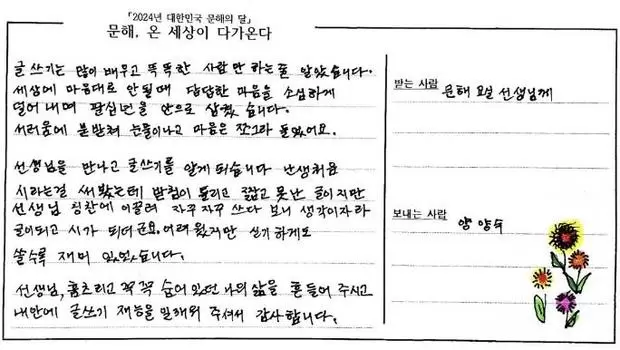 「2024년 대한민국 문해의 달」
문해, 온 세상이 다가온다
글 쓰기는 많이 배우고 똑똑한 사람만 하는줄 알았습니다.
세상에 마음대로 안될때 답답한 마음을 소심하게
덜어내며 팔십년을 안으로 삼켰습니다.
서러움에 북받쳐 눈물이나고 마음은 쪼그라 들었어요.
선생님을 만나고 글쓰기를 알게 되습니다 난생처음
시라는걸 써봤는데 받침이 틀리고 짧고 못난 글이지만
선생님 칭찬에 이끌려 자꾸자꾸 쓰다 보니 생각이자라
글이되고 시가 되더군요, 어려웠지만 신기하게도
쓸수록 재미 있었습니다.
선생님, 움츠리고 꼭꼭 숨어있던 나의 삶을 흔들어 주시고
내안에 글쓰기 재능을 일깨워 주셔서 감사합니다.
받는 사람
문해 교실 선생님께
보내는 사람
양양숙